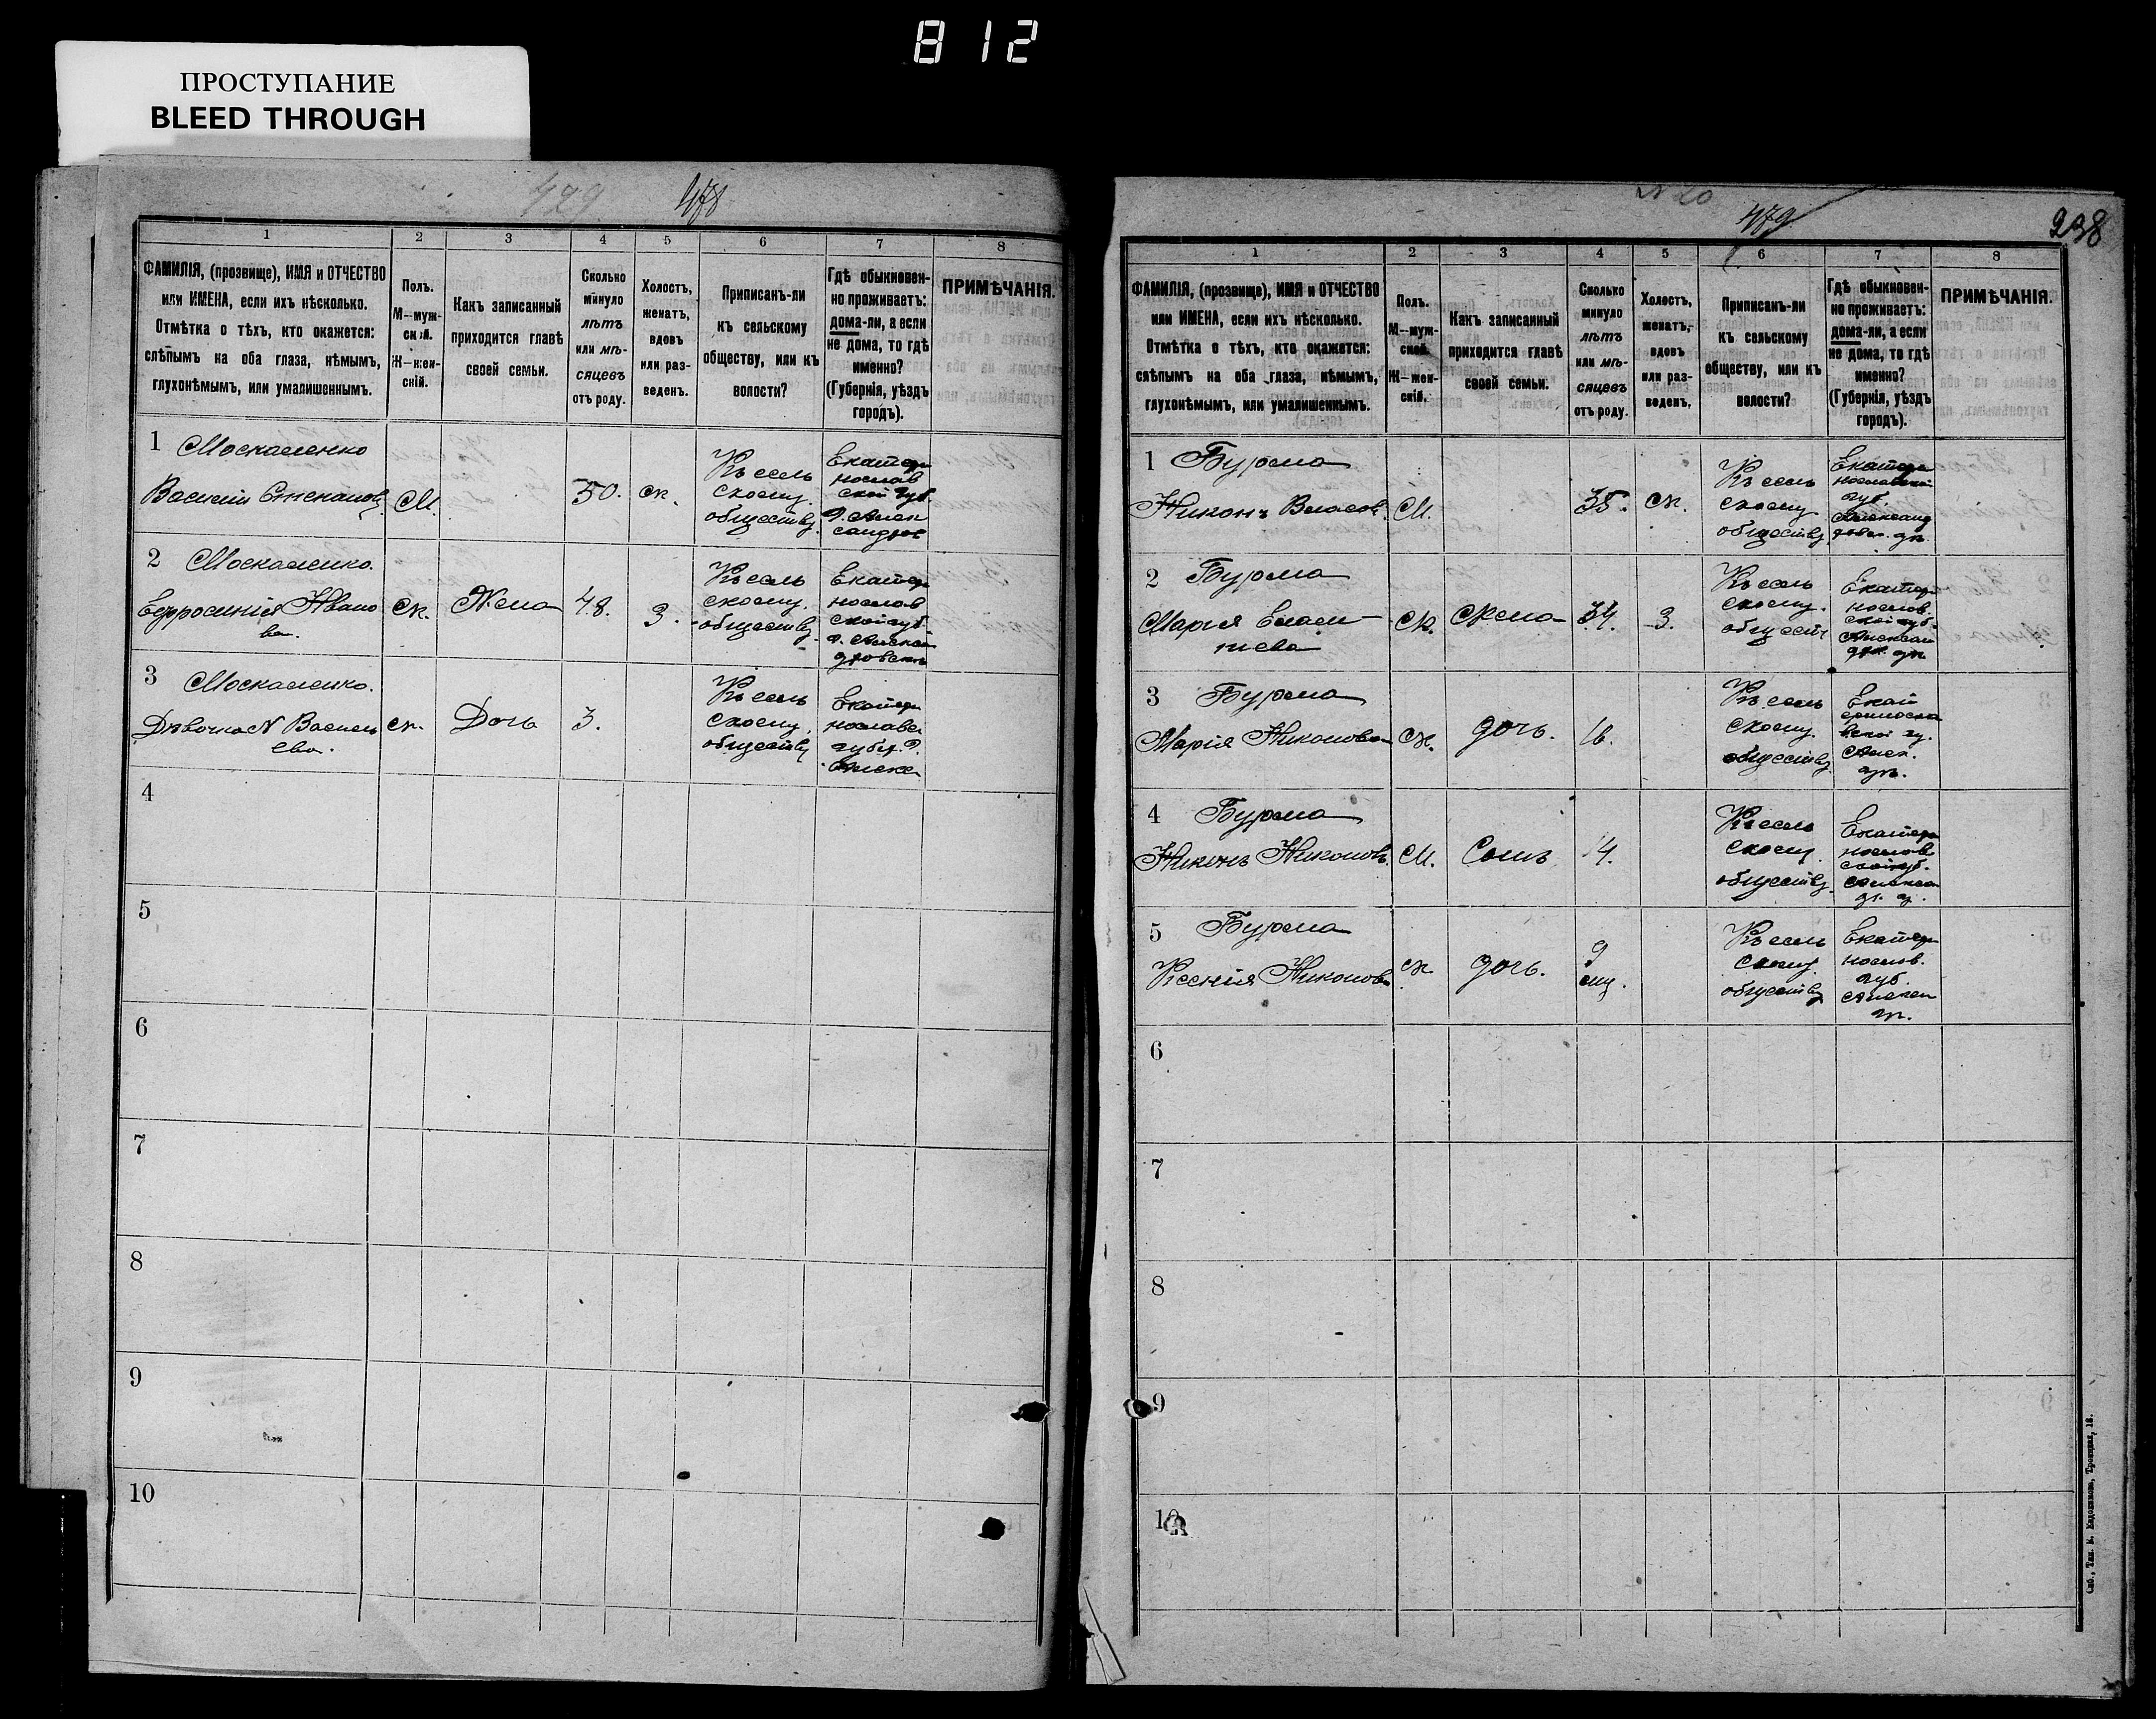 812
ПРОСТУПАНИЕ
BLEED THROUGH
429
478
1 2 3 4 5 6 7 8
ФАМИЛІЯ, (прозвище), ИМЯ и ОТЧЕСТВО
или ИМЕНА, если ихъ нѣсколько.
Отмѣтка о тѣхъ, кто окажется:
слѣпымъ на оба глаза, нѣмымъ,
глухонѣмымъ, или умалишеннымъ.
Полъ.
М—муж-
скій.
Ж—жен-
скій.
Какъ записанный
приходится главѣ
своей семьи.
Сколько
минуло
лѣтъ
или мѣ-
сяцевъ
отъ роду.
Холостъ,
женатъ,
вдовъ
или раз-
веденъ.
Приписанъ-ли
къ сельскому
обществу, или къ
волости?
Гдѣ обыкновен-
но проживаетъ:
дома-ли, а если
не дома, то гдѣ
именно?
(Губернія, уѣздъ
городъ).
ПРИМѢЧАНІЯ.
1 Москаленко
Василій Степановъ
М.
50.
ж.
Къ сель
скому
обществу
Екатери
нослав
ской губ.
Д. Алек
сандров
2 Москаленко.
Ефросинія Ивано
ва.
ж.
Жена
48.
З.
Къ сель
скому.
обществу
Екатери
нослав
ской губ.
д. Алексан
дровскъ
3 Москаленко.
Дѣвочка N Василь
ева.
ж.
Дочь
3.
Къ сель
скому,
обществу
Екатери
нославс
губер. Д.
Алекса
4
5
6
7
8
9
10
N 20
479
238
1 2 3 4 5 6 7 8
ФАМИЛІЯ, (прозвище), ИМЯ и ОТЧЕСТВО
или ИМЕНА, если ихъ нѣсколько.
Отмѣтка о тѣхъ, кто окажется:
слѣпымъ на оба глаза, нѣмымъ,
глухонѣмымъ, или умалишеннымъ.
Полъ.
М—муж-
ской.
Ж—жен-
скій.
Какъ записанный
приходится главѣ
своей семьи.
Сколько
минуло
лѣтъ
или мѣ-
сяцевъ
отъ роду.
Холостъ,
женатъ,
вдовъ
или раз-
веденъ.
Приписанъ-ли
къ сельскому
обществу, или къ
волости?
Гдѣ обыкновен-
но проживаетъ:
дома-ли, а если
не дома, то гдѣ
именно?
(Губернія, уѣздъ
городъ).
ПРИМѢЧАНІЯ.
1 Бурма
Никонъ Власов.
М.
35.
ж.
Къ сель
скому
обществу
Екатери
нославской
губ.
Александ
2 Бурма
Марія
ж.
жена
34.
З.
Къ сель
скому.
обществ
Екатери
нослав.
ской губ.
Алексан
3 Бурма
Марія Никонова
ж.
дочь.
16.
Къ сель
скому.
обществу
Екат
еринослав
ской гу.
Алек.
4 Бурма
Никонъ Никоновъ.
М.
Сынъ
4.
Къ сель
скому
обществу
Екатери
нослав
ской губ.
Алекса
5 Бурма
Ксенія Никонова
ж.
дочь.
9
Къ сель
скому
обществу
Екатери
нослав.
губ.
Алексан
6
7
8
9
10
Спб., Тип. М. Евдокимова, Троицкая, 18.